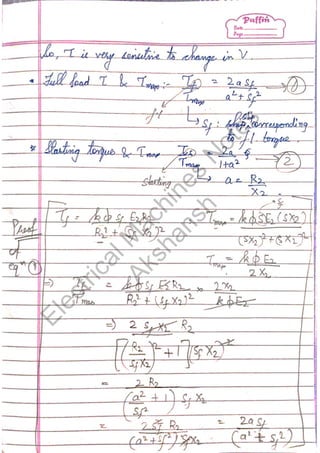 Puffin
Date
Page
So, T is very sensitive to change in V
• Full load T & T max :- Tf / Tmax = 2a Sf / a² + Sf² → ①
f.l
→ Sf : slip corresponding
to f.l. torque.
* Starting torque & T max Tst / Tmax = 2a / 1+a² → ②
Starting → a = R2 / X2
Proof of eqn ①
Tf = kϕ Sf E2 R2 / R2² + (Sf X2)²
Tmax = kϕ S E2 (S X2) / (S X2)² + (S X2)²
Tmax = kϕ E2 / 2 X2
⇒ Tf / Tmax = kϕ Sf E2 R2 / R2² + (Sf X2)² × 2X2 / kϕ E2
⇒ 2 Sf X2 R2 / [(R2 / Sf X2)² + 1] (Sf X2)²
= 2 R2 / (a² / Sf² + 1) Sf X2
= 2 Sf² R2 / (a² + Sf²) Sf X2 = 2a Sf / (a² + Sf²)
Electrical Machines Notes
Akshansh